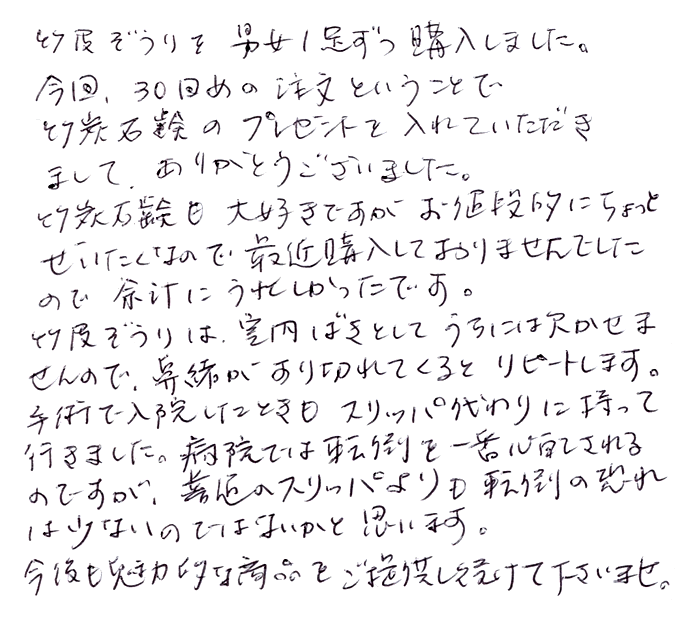 竹皮ぞうりを 男女1足ずつ購入しました。
今回、30回めの注文ということで
竹炭石鹸のプレゼントを入れていただき
まして、ありがとうございました。
竹炭石鹸も大好きですが お値段的にちょっと
ぜいたくなので最近購入しておりませんでした
ので 余計にうれしかったです。
竹皮ぞうりは、室内ばきとしてうちには欠かせま
せんので、鼻緒がすり切れてくるとリピートします。
手術で入院したときも スリッパ代わりに持って
行きました。病院では転倒を一番心配される
のですが、普通のスリッパよりも転倒の恐れ
は少ないのではないかと思います。
今後も魅力的な商品をご提供し続けて下さいませ。